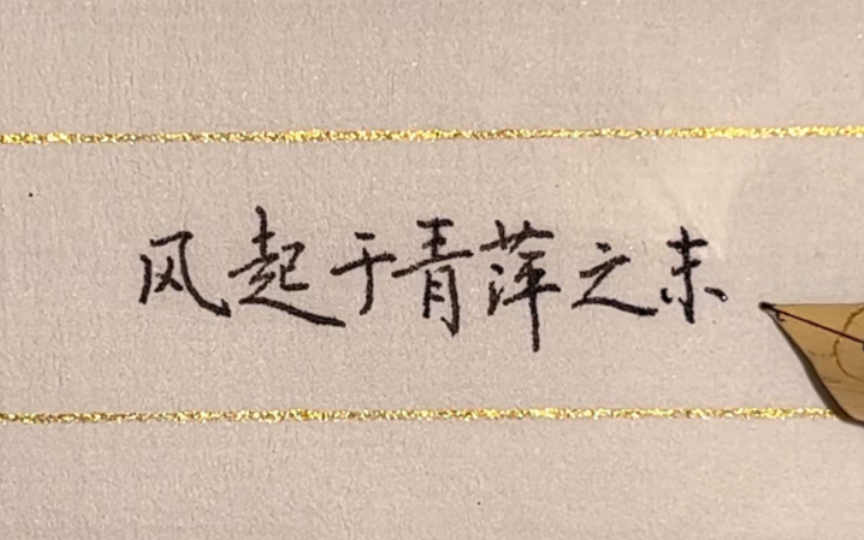 风起于青萍之末